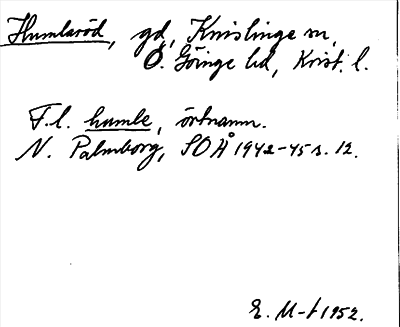 Humlaröd, gd, Knislinge sn,
Ö. Göinge hd, Krist. l.
F.l. humle, örtnamn.
N. Palmborg, SOÅ 1942-45 s. 12.
E. M-t 1952.